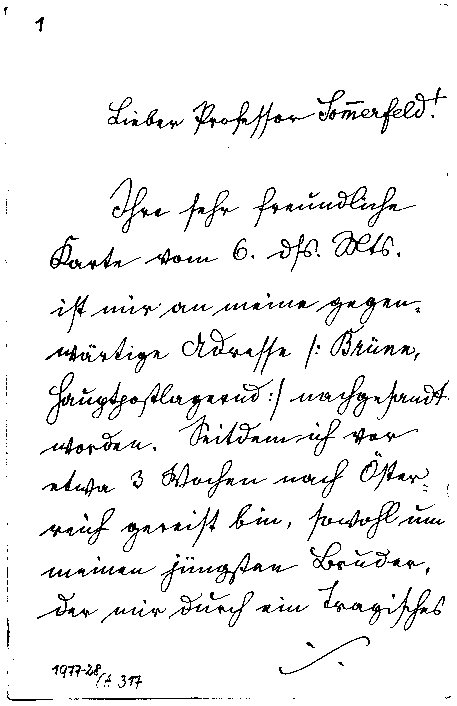 1
Lieber Professor Som̅erfeld!
Ihre sehr freundliche
Karte vom 6. dſs. Mts.
ist mir an meine gegen-
wärtige Adresse /: Brünn,
Hauptpostlagernd :/ nachgesandt
worden. Seitdem ich vor
etwa 3 Wochen nach Öster-
reich gereist bin, sowohl um
meinen jüngsten Bruder,
der mir durch ein tragisches
./.
1977-28/A 317